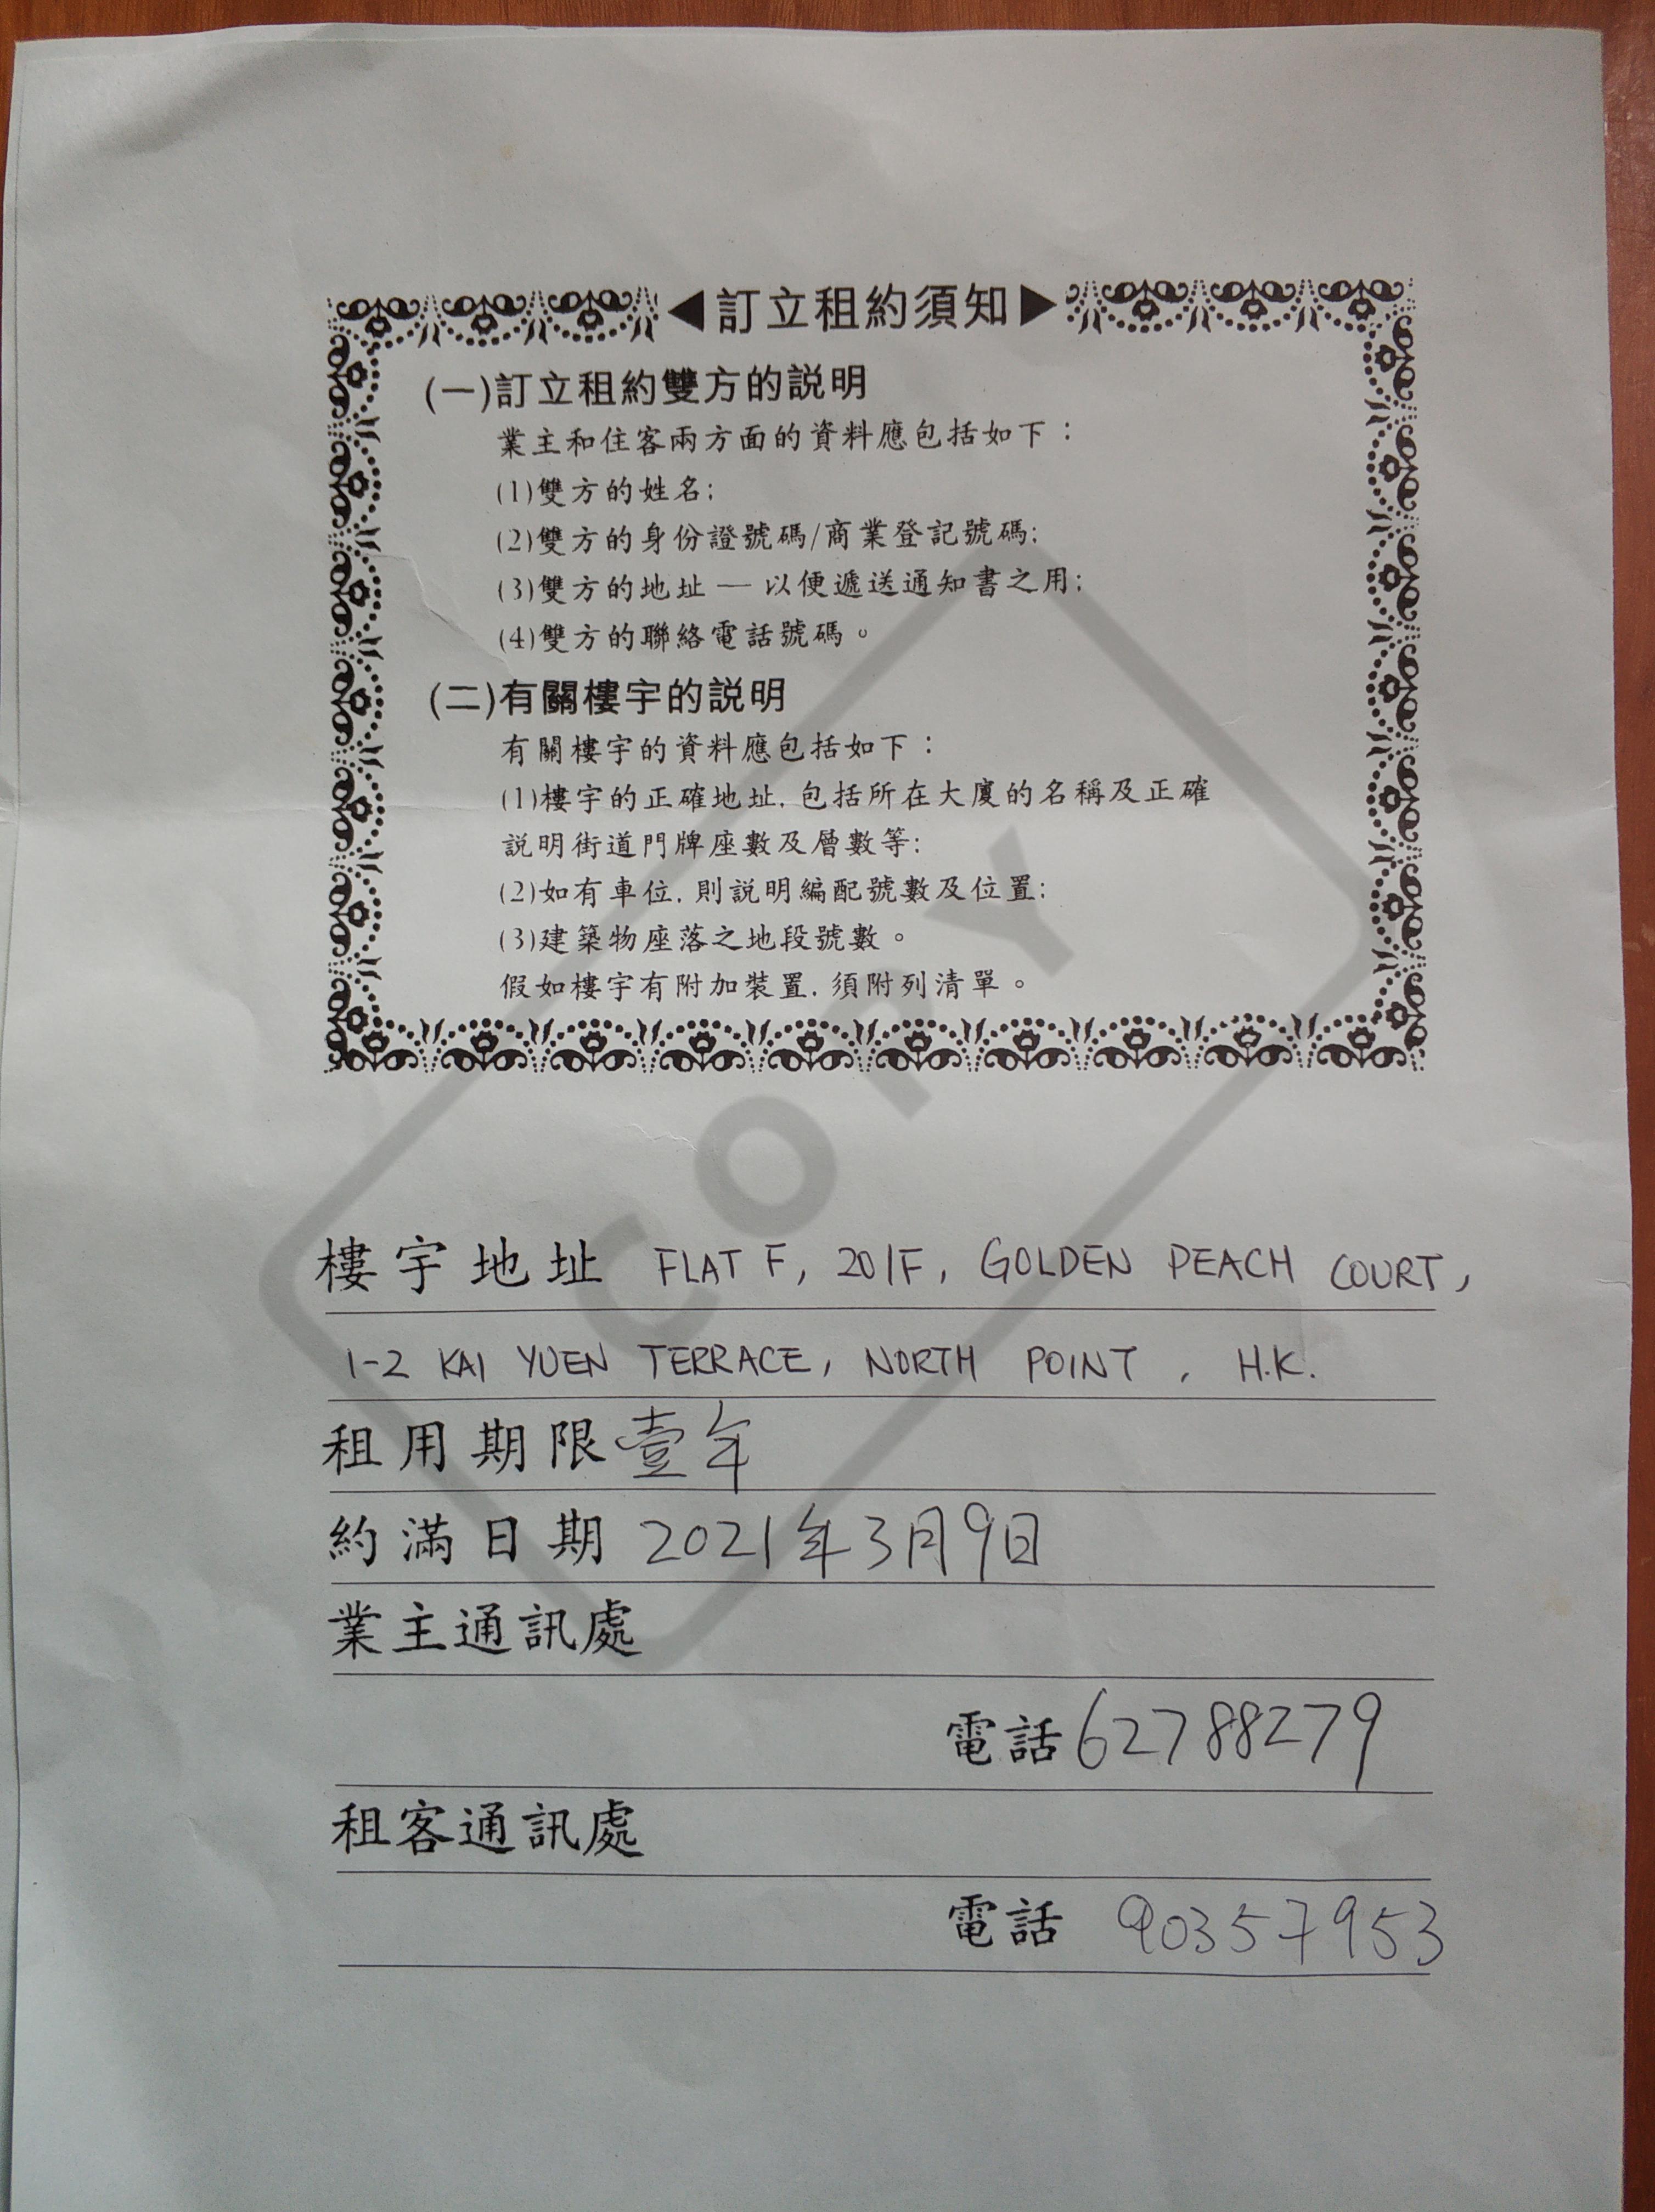 ◀訂立租約須知▶
(一)訂立租約雙方的説明
業主和住客兩方面的資料應包括如下：
(1)雙方的姓名;
(2)雙方的身份證號碼/商業登記號碼;
(3)雙方的地址 — 以便遞送通知書之用;
(4)雙方的聯絡電話號碼。
(二)有關樓宇的説明
有關樓宇的資料應包括如下：
(1)樓宇的正確地址, 包括所在大廈的名稱及正確
説明街道門牌座數及層數等;
(2)如有車位, 則説明編配號數及位置;
(3)建築物座落之地段號數。
假如樓宇有附加裝置, 須附列清單。
COPY
樓宇地址 FLAT F, 20/F, GOLDEN PEACH COURT,
1-2 KAI YUEN TERRACE, NORTH POINT, H.K.
租用期限壹年
約滿日期 2021年3月9日
業主通訊處
電話 62788279
租客通訊處
電話 90357953